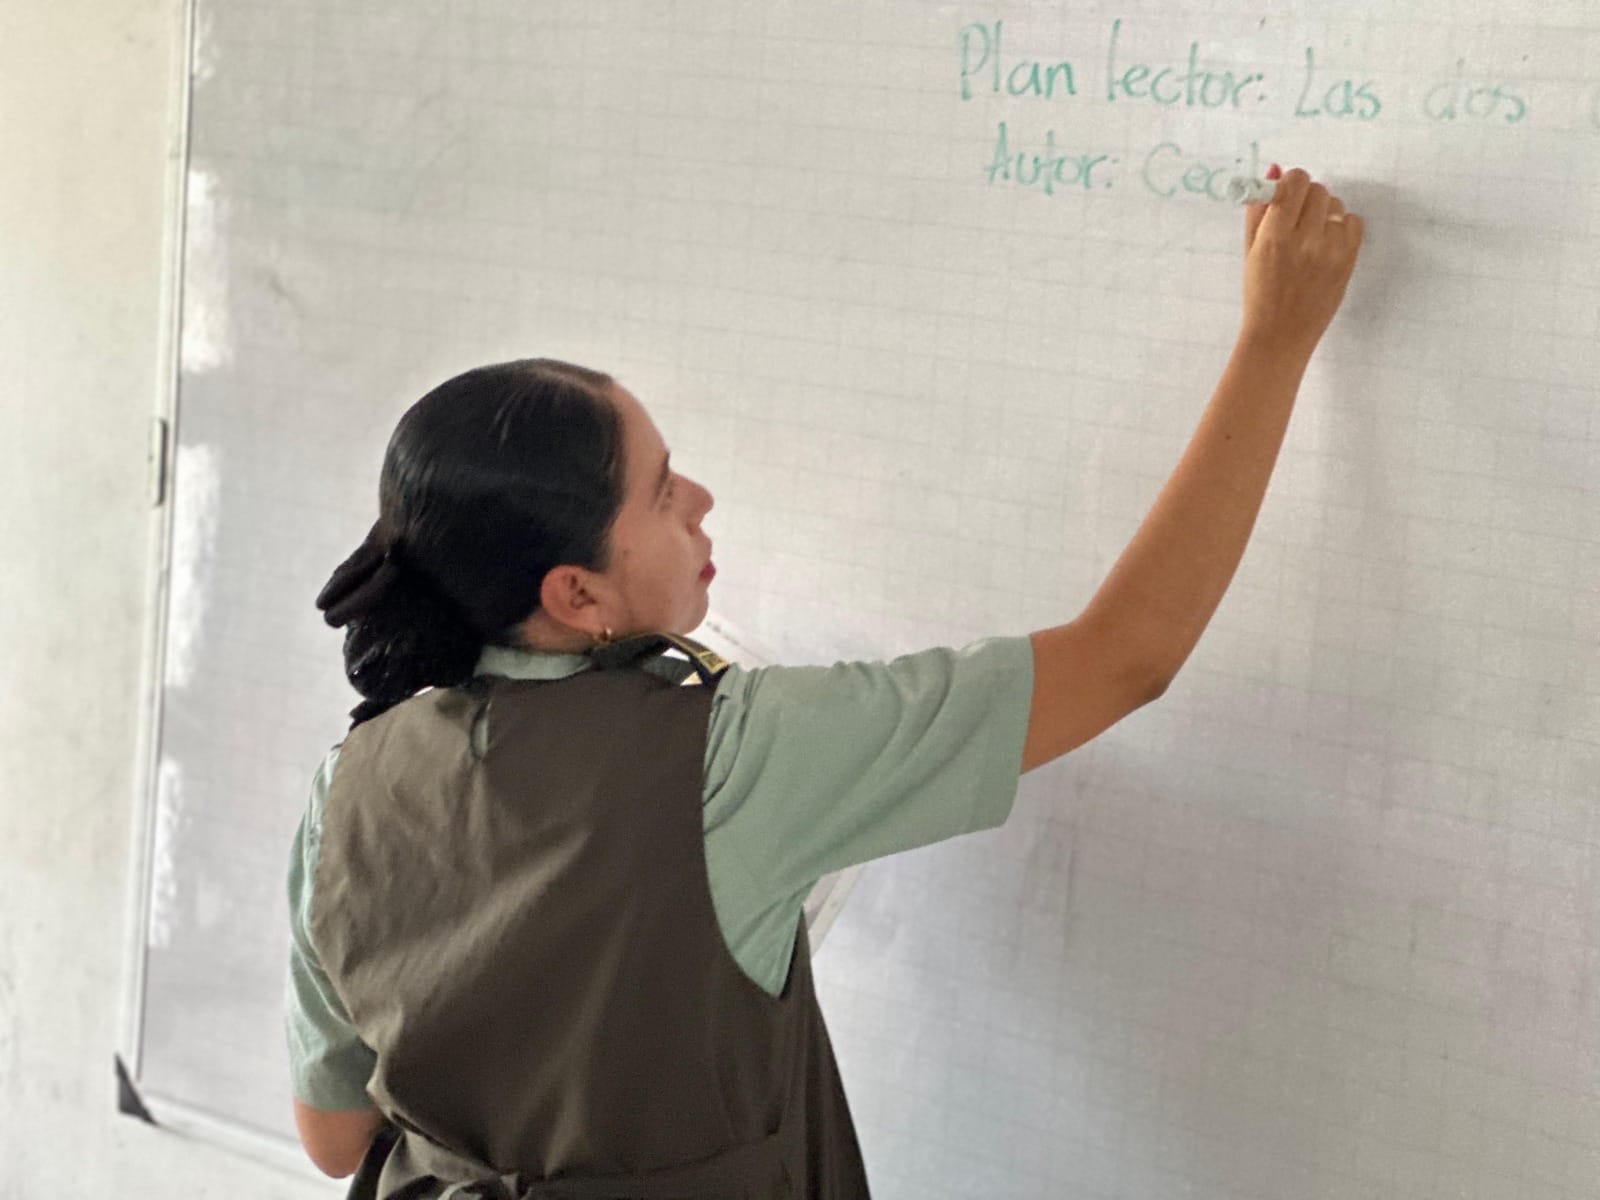 Plan lector: Las dos
Autor: Cecil